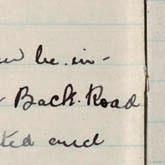 be in-
Back. Road
ted and